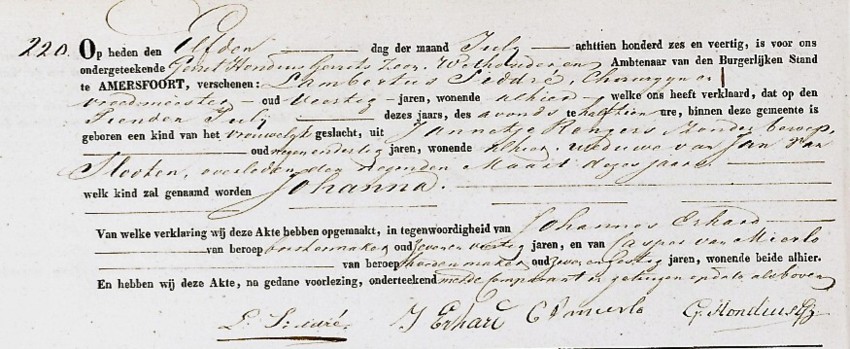 220. Op heden den Elfden dag der maand July achttien honderd zes en veertig, is voor ons
ondergeteekende Gerret Hondius Gerrets Zoon, Wethouder en Ambtenaar van den Burgerlijken Stand
te AMERSFOORT, verschenen: Lambertus Sidré, Chirurgyn en
vroedmeester oud veertig jaren, wonende alhier welke ons heeft verklaard, dat op den
Tienden July dezes jaars, des avonds te half tien ure, binnen deze gemeente is
geboren een kind van het vrouwelyk geslacht, uit Jannetje Rengers zonder beroep,
oud negen en dertig jaren, wonende alhier, weduwe van Jan van
Slooten, overleden den negenden Maart dezes jaars.
welk kind zal genaamd worden Johanna.
Van welke verklaring wij deze Akte hebben opgemaakt, in tegenwoordigheid van Johannes Erhard
van beroep oud zeven en veertig jaren, en van Caspar van Mierlo
van beroep hoedenmaker oud zeven en jaren, wonende beide alhier.
En hebben wij deze Akte, na gedane voorlezing, onderteekend met de comparant en getuigen op dato als boven
L. Sidré. J Erhard C V Mierlo G. Hondius Gz